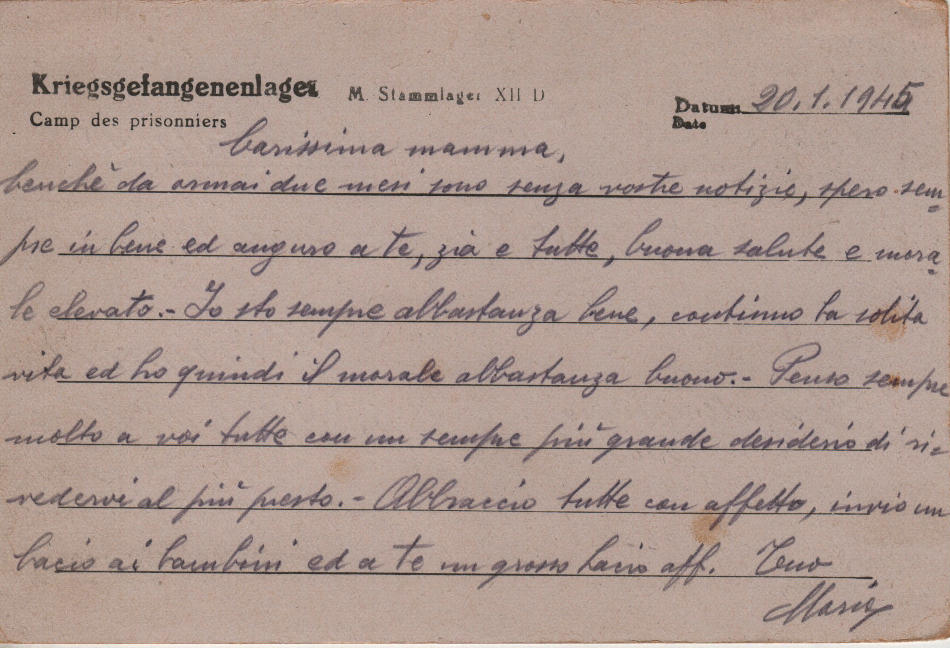 Kriegsgefangenenlager M. Stammlager XII D
Camp des prisonniers
Datum: 20.1.1945
Date
Carissima mamma,
benchè da ormai due mesi sono senza vostre notizie, spero sem=
pre in bene ed auguro a te, zia e tutte, buona salute e mora=
le elevato.- Io sto sempre abbastanza bene, continuo la solita
vita ed ho quindi il morale abbastanza buono.- Penso sempre
molto a voi tutte con un sempre più grande desiderio di ri=
vedervi al più presto.- Abbraccio tutte con affetto, invio un
bacio ai bambini ed a te un grosso bacio aff. Tuo
Mario